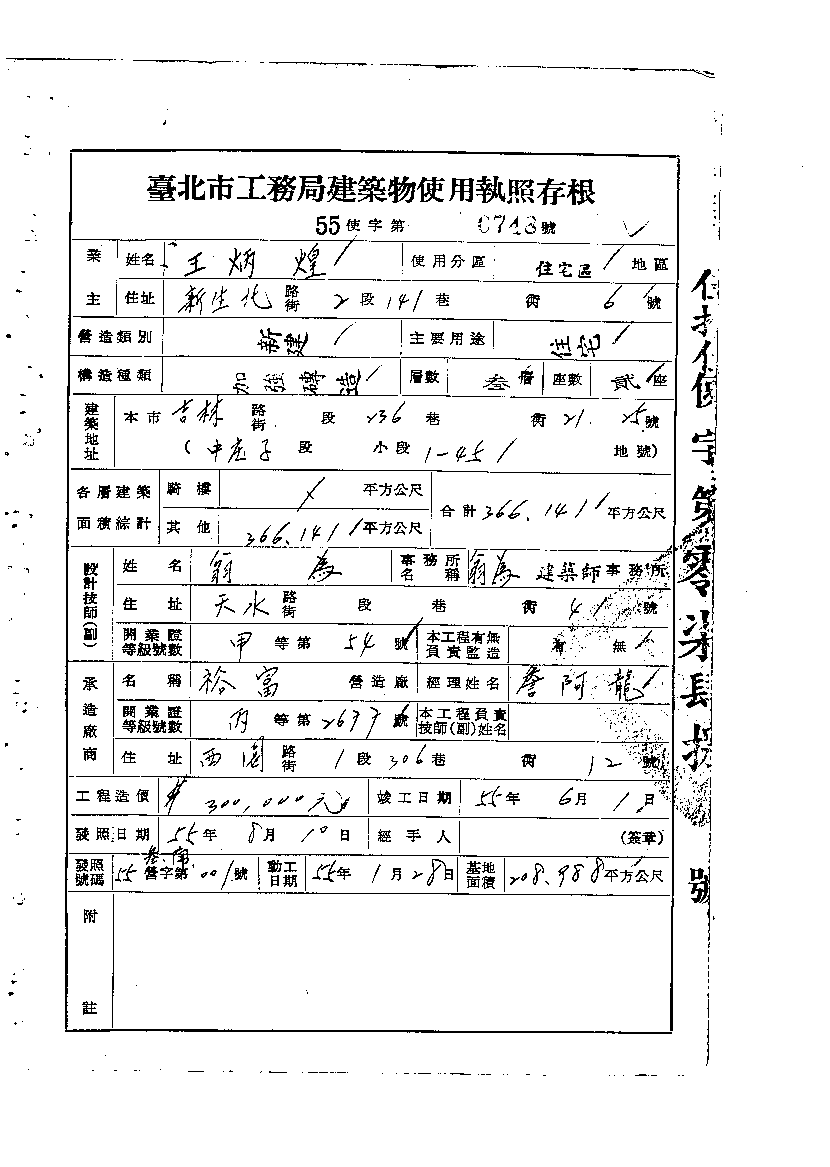 臺北市工務局建築物使用執照存根
55使字第 0743號
業主 姓名 王炳煌 使用分區 住宅區 地區
住址 新生北 路街 2段 141巷 衖 6號
營造類別 新建 主要用途 住宅
構造種類 加強磚造 層數 叁層 座數 貳座
建築地址 本市 吉林 路街 段 236巷 衖 21. 25號
(中庄子 段 小段 1-45 地號)
各層建築面積綜計 騎樓 平方公尺 合計 366.14 平方公尺
其他 366.14 平方公尺
設計技師(副) 姓名 翁為 事務所名稱 翁為 建築師事務所
住址 天水 路街 段 巷 衖 41號
開業證等級號數 甲等第 54號 本工程有無負責監造 有 無
承造廠商 名稱 裕富 營造廠 經理姓名 詹阿龍
開業證等級號數 丙等第 號 本工程負責技師(副)姓名
住址 西園 路街 1段 306巷 衖 12號
工程造價 300,000元 竣工日期 55年 6月 1日
發照日期 55年 8月 10日 經手人 (簽章)
發照號碼 55營字第 001號 動工日期 55年 1月 28日 基地面積 208.988平方公尺
附註
字第零柒肆 號